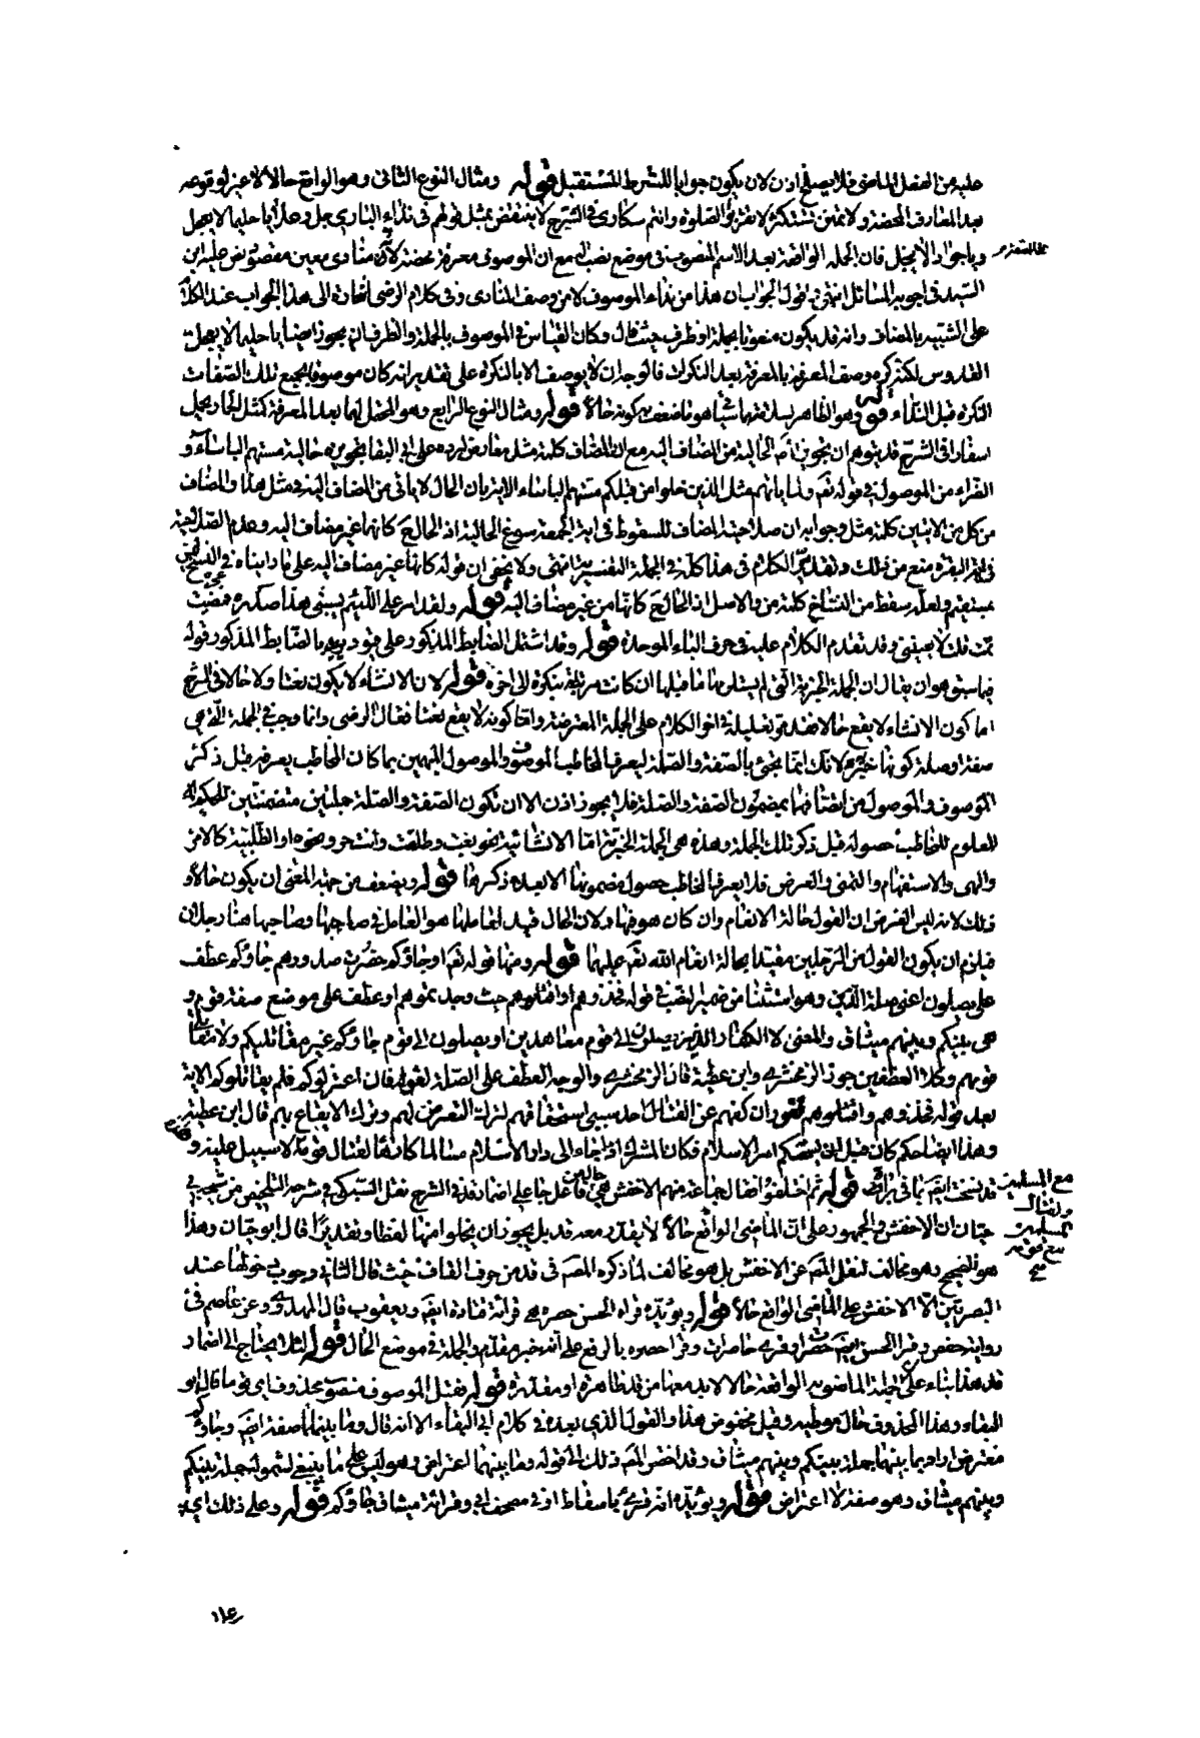 عليه من الفعل الماضي فلا يصلح اذن لان يكون جوابا للشرط المستقبل قوله ومثال النوع الثاني وهو الواقع حالا لا غير لوقوعه
بعد المعارف المحضة ولا تمنن تستكثر لا تقربوا الصلوة وانتم سكارى في الشرح لا ينتقض بمثل قولهم في نداء الباري جل وعلا يا حليما لا يعجل
ويا جوادا لا يبخل فان الجملة الواقعة بعد الاسم المنصوب في موضع نصب مع ان الموصوف معرفة محضة لانه منادى معين مقصود نص عليه ابن
السيد في اجوبة المسائل انتهى اقول الجواب ان هذا من نداء الموصوف لا من وصف المنادى وفي كلام الرضي اشارة الى هذا الجواب عند الكلام
على الشبيه بالمضاف وانه قد يكون منعوتا بجملة او ظرف حيث قال وكان القياس في الموصوف بالجملة والظرف ان يجوز ايضا يا حليما لا يعجل
القدوس لكنه كره وصف المعرفة بالمعرفة بعد النكرة فالوجه ان لا يوصف الا بالنكرة على تقدير انه كان موصوفا بجميع تلك الصفات
النكرة قبل النداء قوله وهو الظاهر قوله ومثال النوع الرابع وهو المحتمل لهما بعد المعرفة كمثل الحمار يحمل
اسفارا في الشرح قد يتوهم ان تجويز الحالية من المضاف اليه مع ان المضاف كلمة مثل معارض لرده على ابي البقا تجويزه حالية مستهم الباساء و
الضراء من الموصول في قوله تعالى ولما ياتكم مثل الذين خلوا من قبلكم مستهم الباساء الاية بان الحال لا ياتي من المضاف اليه في مثل هذا والمضاف
من كل من الايتين كلمة مثل وجوابه ان صلاحية المضاف للسقوط في اية الجمعة سوغ الحالية اذ الحال كانها من غير مضاف اليه وعدم الصلاحية
في اية البقرة منع من ذلك وتقدم الكلام في هذا كله في الجملة التفسيرية انتهى ولا يخفى ان قوله كانها غير مضاف اليه على ما رايناه في النسخ غير
مستقيم ولعله سقط من النساخ كلمة من والاصل اذ الحال كانها من غير مضاف اليه قوله ولقد امر على اللئيم يسبني هذا صدره فمضيت
ثمت قلت لا يعنيني وقد تقدم الكلام عليه في حرف الباء الموحدة قوله وقد اشتمل الضابط المذكور على قيود يريد بالضابط المذكور قوله
فيما سبق هو ان يقال ان الجملة الخبرية التي لم يستلزمها ما قبلها ان كانت مرتبطة بنكرة الى اخره قوله لان الانشاء لا يكون نعتا ولا حالا في الشرح
اما كون الانشاء لا يقع حالا فقد مر تعليله في اخر الكلام على الجملة المعترضة واما كونه لا يقع نعتا فقال الرضي وانما وجب في الجملة التي هي
صفة او صلة كونها خبرية لانك انما تجيء بالصفة والصلة ليعرف المخاطب الموصوف والموصول المبهمين بما كان المخاطب يعرفه قبل ذكر
الموصوف والموصول من اتصافهما بمضمون الصفة والصلة فلا يجوز اذن الا ان تكون الصفة والصلة جملتين متضمنتين للحكم
المعلوم للمخاطب حصوله قبل ذكر تلك الجملة وهذه هي الجملة الخبرية اما الانشائية نحو بعت وطلقت وانت حر ونحوه او الطلبية كالامر
والنهي والاستفهام والتمني والعرض فلا يعرف المخاطب حصول مضمونها الا بعد ذكرها قوله ويضعف من حيث المعنى ان يكون حالا و
ذلك لانه ليس الغرض ان القول حالة الانعام وان كان هو فيها ولان الحال قيد لعاملها هو العامل في صاحبها وصاحبها هنا رجلان
فيلزم ان يكون القول من الرجلين مقيدا بحالة انعام الله تعالى عليهما قوله ومنها قوله تعالى او جاؤكم حصرت صدورهم جاؤكم عطف
على يصلون اعني صلة الذين وهو استثناء من ضمير النصب في قوله فخذوهم واقتلوهم حيث وجدتموهم او عطف على موضع صفة قوم و
هي بينكم وبينهم ميثاق والمعنى لا الكفار الذين يصلون الى قوم معاهدين او يصلون الى قوم جاؤكم غير مقاتليكم ولا مقاتلي
قومهم وكلا العطفين جوز الزمخشري وابن عطية قال الزمخشري والوجه العطف على الصلة لقوله فان اعتزلوكم فلم يقاتلوكم الاية
بعد قوله فخذوهم واقتلوهم فقرر ان كفهم عن القتال احد سببي استحقاقهم لترك التعرض لهم وترك الايقاع بهم قال ابن عطية
وهذا ايضا حكم كان قبل ان يستحكم امر الاسلام فكان المشرك اذا جاء الى دار الاسلام مسالما كارها لقتال قومه لا سبيل عليه و
قد نسخت ايضا بما في براءة قوله ثم اختلفوا فقال جماعة منهم الاخفش هي حال من فاعل جاء على اضمار قد في الشرح نقل السبكي في شرحه التلخيص من شيخه ابي
حيان ان الاخفش والجمهور على ان الماضي الواقع حالا لا يقدر معه قد بل يجوز ان يخلو منها لفظا وتقديرا قال ابو حيان وهذا
هو الصحيح وهو مخالف لنقل المصنف عن الاخفش بل هو مخالف لما ذكره المصنف في قد من حرف القاف حيث قال الثاني وجوب دخولها عند
البصريين الا الاخفش على الماضي الواقع حالا قوله ويؤيده قراءة الحسن حصرة هي قراءة قتادة ايضا ويعقوب قال المهدوي وعن عاصم في
رواية حفص وقرا الحسن ايضا حصرات وقرئ حاصرات وقرا حصرة بالرفع على انه خبر مقدم والجملة في موضع الحال قوله لئلا يحتاج الى اضمار
قد هذا بناء على ان الجملة الماضوية الواقعة حالا لا بد معها من قد ظاهرة او مقدرة قوله فقيل الموصوف منصوب محذوف اي قوما قال ابو
البقاء وهذا المحذوف حال موطئة وقيل مخفوض هذا والقول الذي بعده في كلام ابي البقاء الا انه قال وما بينهما صفة ايضا وجاؤكم
معترض اراد بما بينهما جملة بينكم وبينهم ميثاق وقد اختصر المصنف ذلك الى قوله وما بينهما اعتراض وهو ليس على ما ينبغي لشموله جملة بينكم
وبينهم ميثاق وهو صفة لا اعتراض قوله ويؤيده انه قرئ باسقاط او في مصحف ابي وقراءته ميثاق جاؤكم قوله وعلى ذلك اي
مع المسلمين
ولقتال
المسلمين
مع قومه
صح